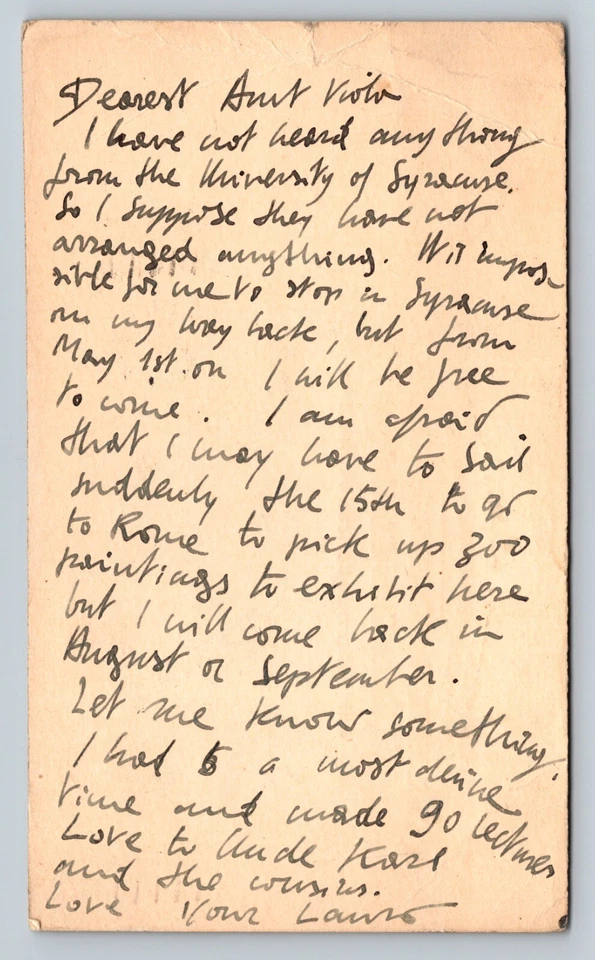 Dearest Aunt Viola
I have not heard anything
from the University of Syracuse.
So I suppose they have not
arranged anything. It is impos-
sible for me to stop in Syracuse
on my way back, but from
May 1st. on I will be free
to come. I am afraid
that I may have to sail
suddenly the 15th to go
to Rome to pick up 300
paintings to exhibit here
but I will come back in
August or September.
Let me know something.
I had a most divine
time and made 90 lectures
Love to Uncle Karl
and the cousins.
Love Your Lauro